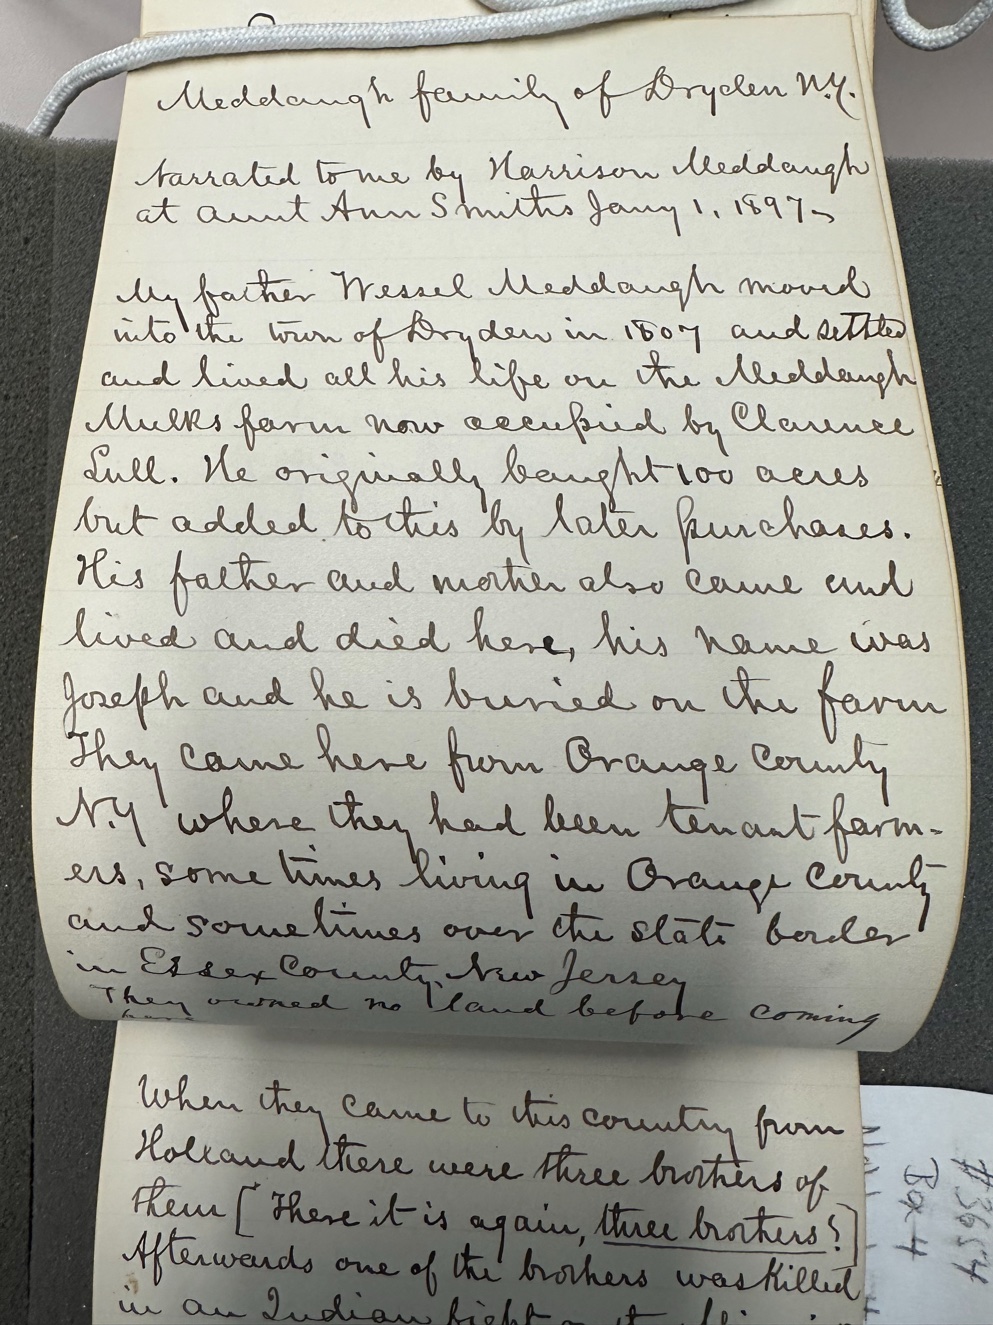 Meddaugh family of Dryden N.Y.
Narrated to me by Harrison Meddaugh
at aunt Ann Smiths Jany 1, 1897
My father Wessel Meddaugh moved
into the town of Dryden in 1807 and settled
and lived all his life on the Meddaugh
Mulks farm now occupied by Clarence
Lull. He originally bought 100 acres
but added to this by later purchases.
His father and mother also came and
lived and died here, his name was
Joseph and he is buried on the farm
They came here from Orange County
N.Y where they had been tenant farm-
ers, sometimes living in Orange County
and sometimes over the state border
in Essex County, New Jersey
They owned no land before coming
here
When they came to this country from
Holland there were three brothers of
them [There it is again, three brothers!]
Afterwards one of the brothers was killed
in an Indian fight
#3654
Box 4